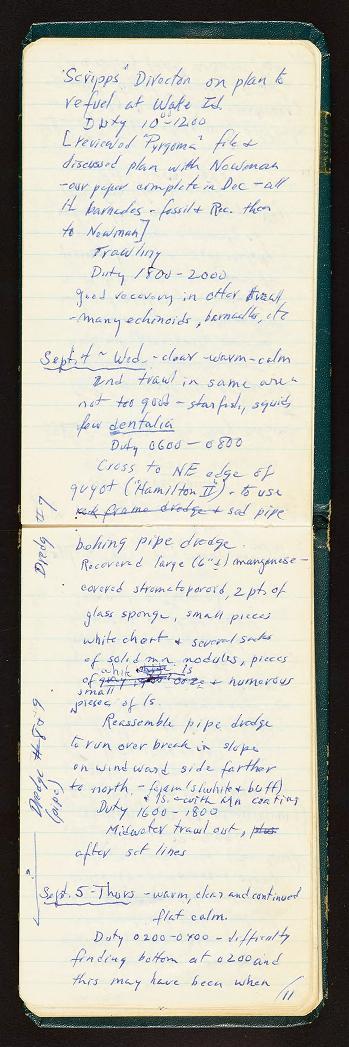 "Scripps" Director on plan to
refuel at Wake Id.
Duty 10⁰⁰-1200
[reviewed "Pyrgoma" file &
discussed plan with Newman
-our paper complete in Dec - all
barnacles - fossil & Rec. then
to Newman]
Trawling
Duty 1800-2000
good recovery in otter trawl
-many echinoids, barnacles, etc
Sept. 4 - Wed. - clear - warm - calm
2nd trawl in same area
not too good - starfish, squids
few dentalia
Duty 0600-0800
Cross to NE edge of
guyot ("Hamilton II") - to use
rock frame dredge & sed pipe
Dredg #7
boking pipe dredge.
Recovered large (6"±) manganese-
covered stromatoporoid, 2 pts. of
glass sponge, small pieces
white chert & several sacks
of solid mn nodules, pieces
of white ls
ooze & numerous
small
pieces of ls.
Dredge #8 & 9
(pipe)
Reassemble pipe dredge
to run over break in slope
on windward side farther
to north - (white & buff)
& ls. with Mn coating
Duty 1600-1800
Midwater trawl out,
after set lines
Sept. 5 - Thurs - warm, clear and continued
flat calm.
Duty 0200-0400 - difficulty
finding bottom at 0200 and
this may have been when
11